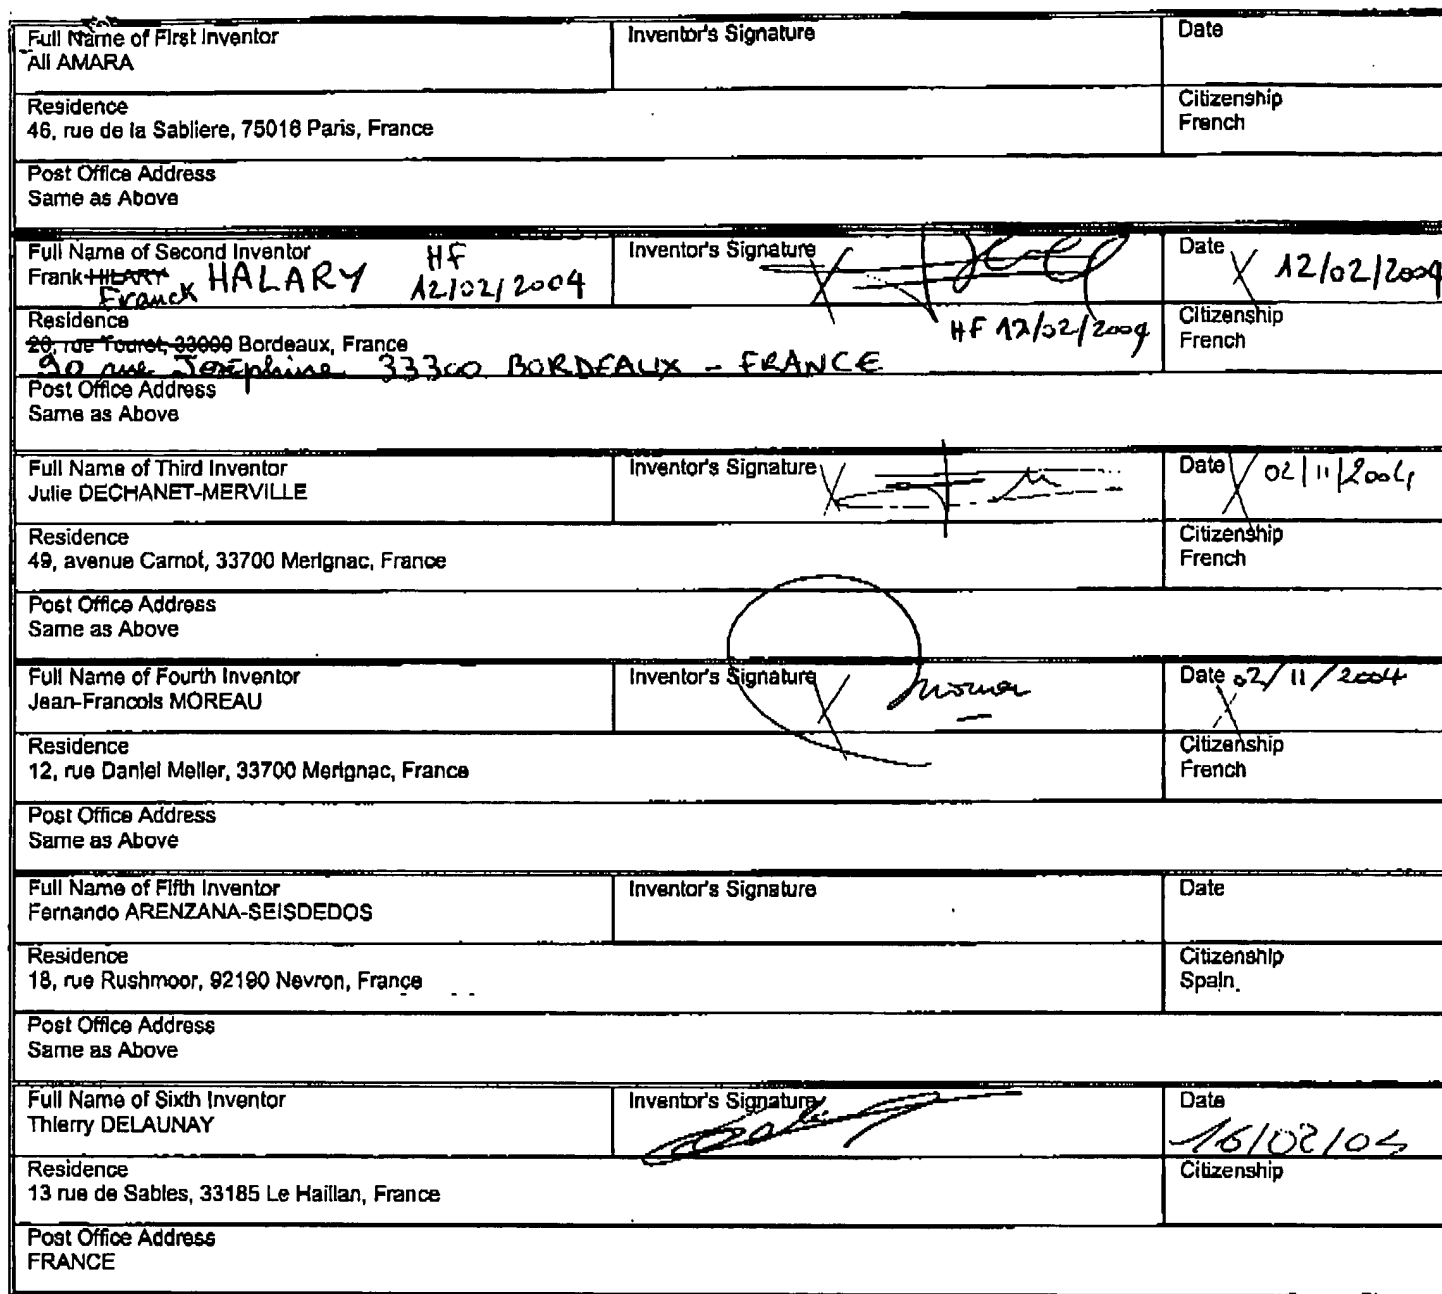 Full Name of First Inventor
Ali AMARA
Inventor's Signature
Date
Residence
46, rue de la Sabliere, 75016 Paris, France
Citizenship
French
Post Office Address
Same as Above
Full Name of Second Inventor
Frank HILARY HALARY
Franck
HF
12/02/2004
Inventor's Signature
HF 12/02/2004
Date
12/02/2004
Residence
20, rue Touret, 33000 Bordeaux, France
90 rue Joséphine 33300 BORDEAUX - FRANCE
Citizenship
French
Post Office Address
Same as Above
Full Name of Third Inventor
Julie DECHANET-MERVILLE
Inventor's Signature
Date
02/11/2004
Residence
49, avenue Carnot, 33700 Merignac, France
Citizenship
French
Post Office Address
Same as Above
Full Name of Fourth Inventor
Jean-Francois MOREAU
Inventor's Signature
Date 02/11/2004
Residence
12, rue Daniel Meller, 33700 Merignac, France
Citizenship
French
Post Office Address
Same as Above
Full Name of Fifth Inventor
Fernando ARENZANA-SEISDEDOS
Inventor's Signature
Date
Residence
18, rue Rushmoor, 92190 Nevron, France
Citizenship
Spain
Post Office Address
Same as Above
Full Name of Sixth Inventor
Thierry DELAUNAY
Inventor's Signature
Date
16/02/04
Residence
13 rue de Sables, 33185 Le Haillan, France
Citizenship
Post Office Address
FRANCE